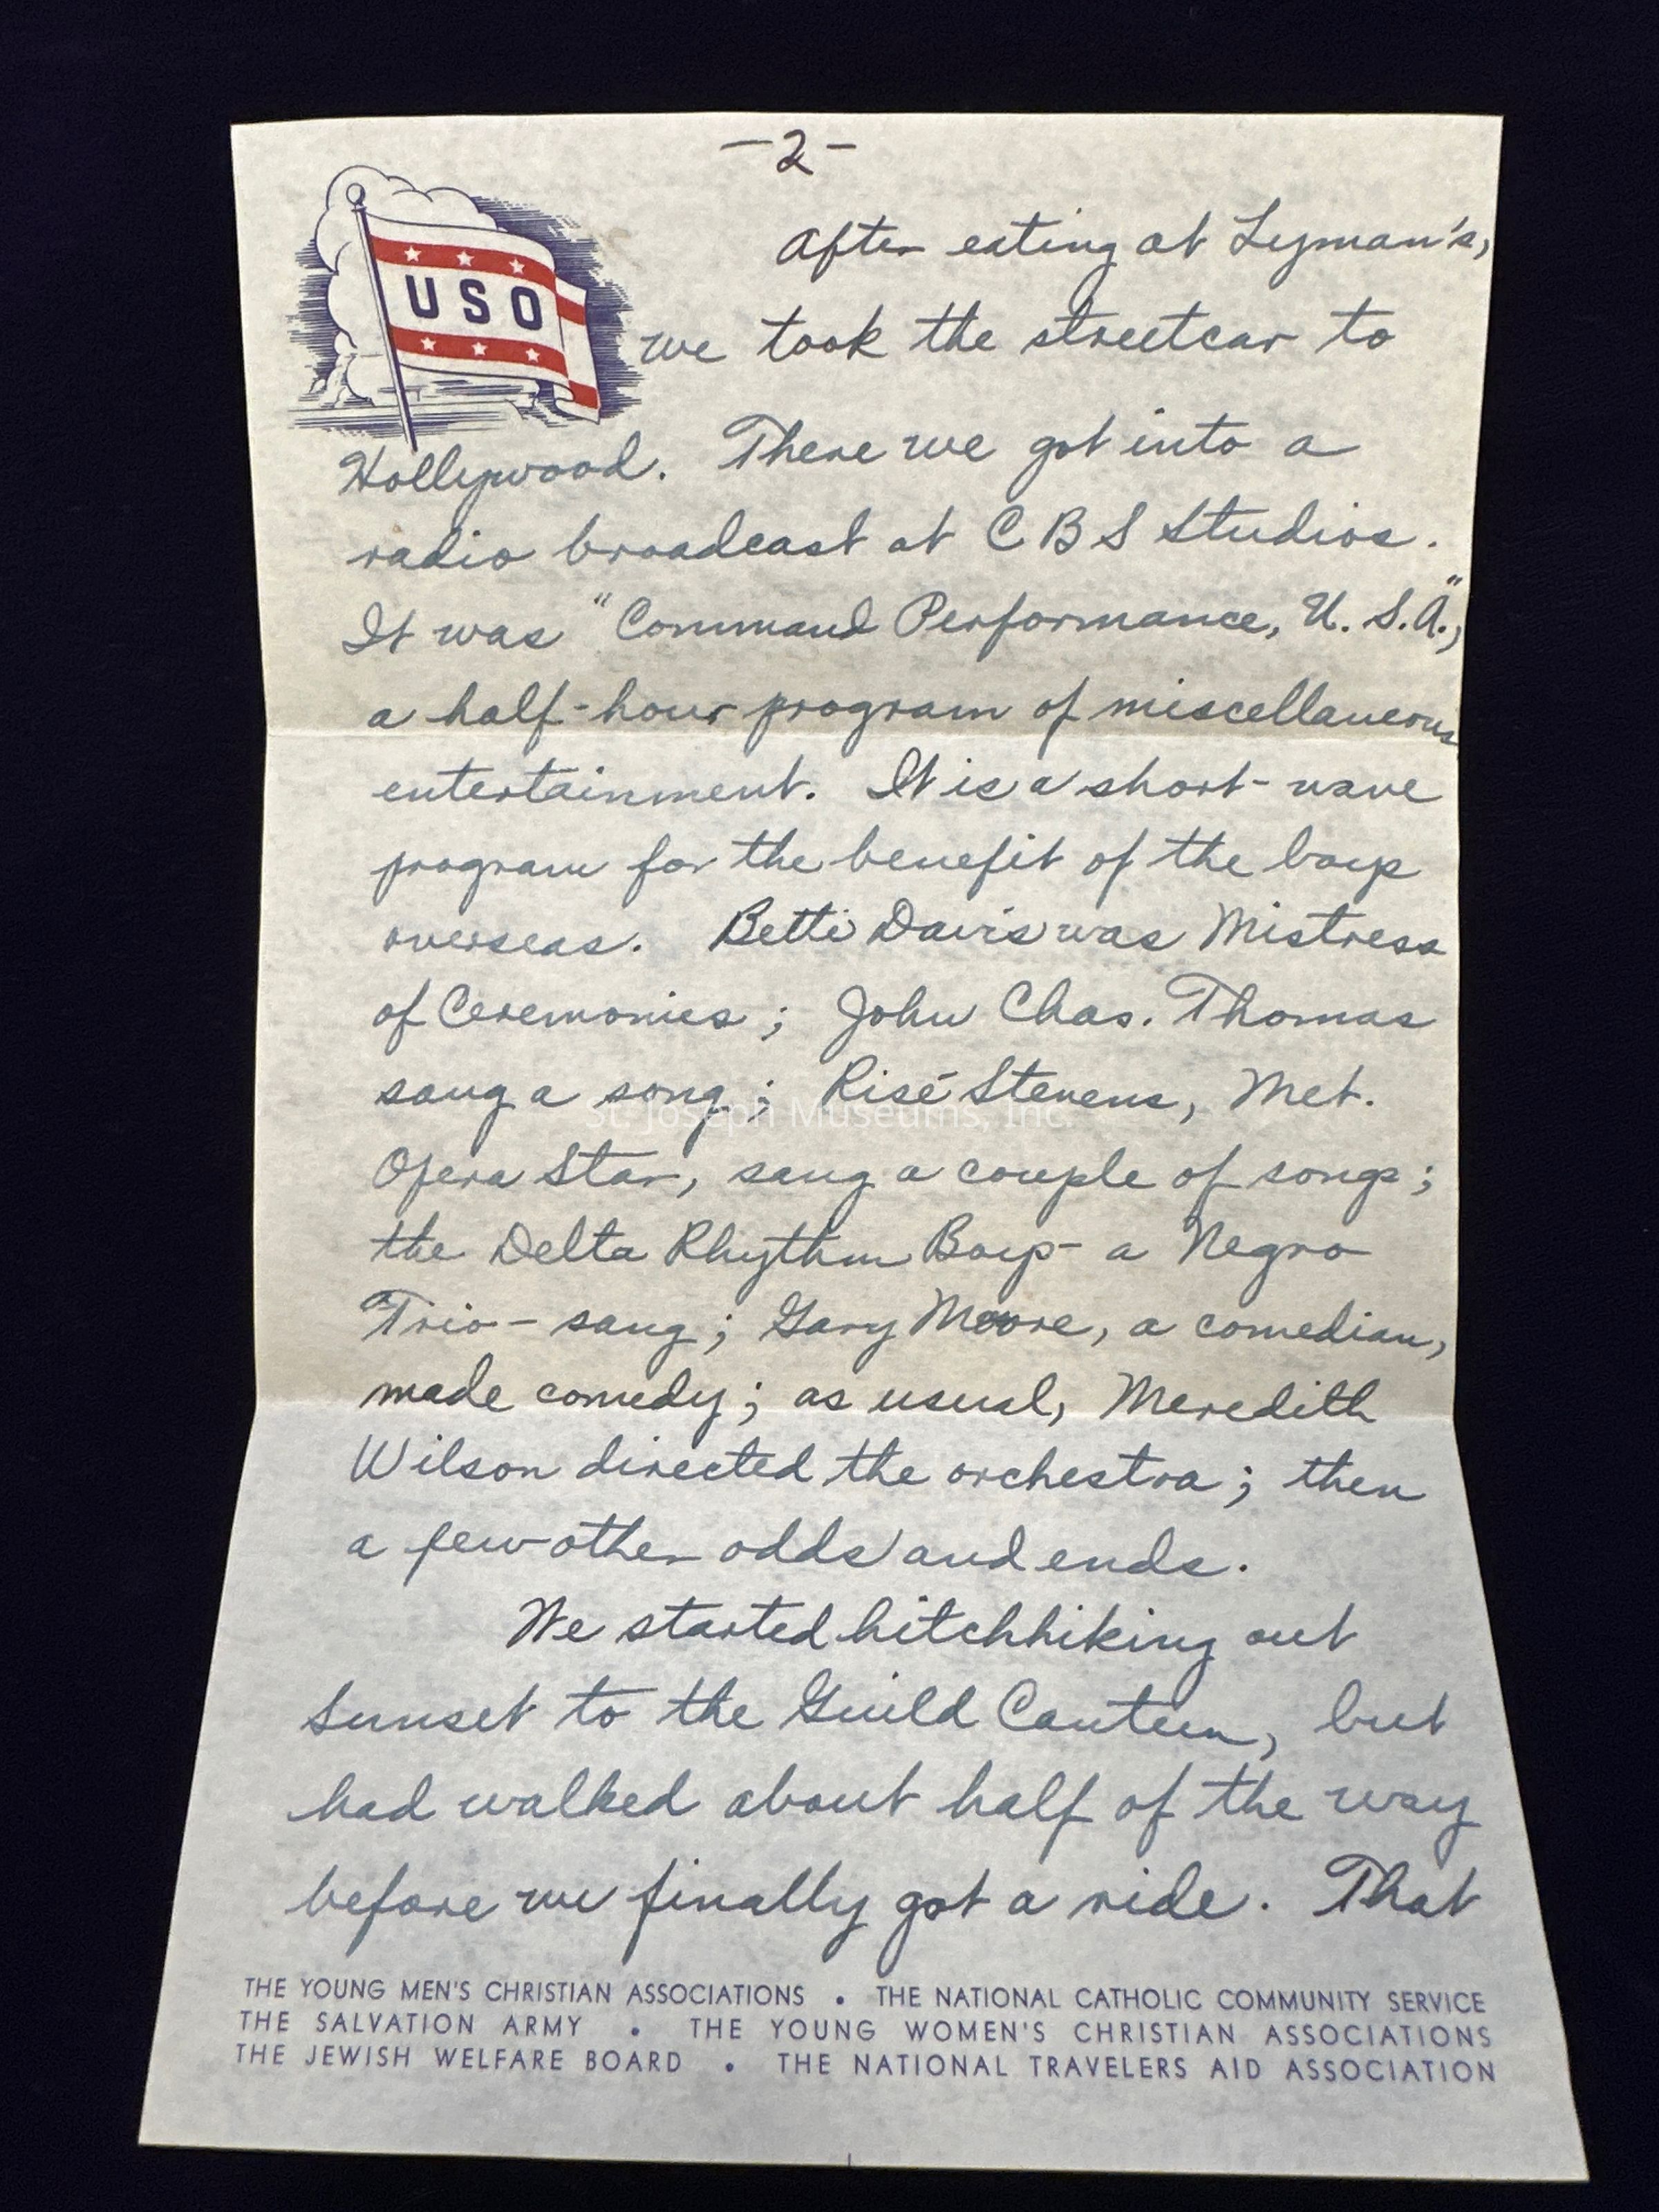 -2-
USO
After eating at Lyman's,
we took the streetcar to
Hollywood. There we got into a
radio broadcast at CBS Studios.
It was "Command Performance, U.S.A.",
a half-hour program of miscellaneous
entertainment. It is a short-wave
program for the benefit of the boys
overseas. Betti Davis was Mistress
of Ceremonies; John Chas. Thomas
sang a song; Risé Stevens, Met.
St. Joseph Museums, Inc.
Opera Star, sang a couple of songs;
the Delta Rhythm Boys - a Negro
Trio - sang; Gary Moore, a comedian,
made comedy; as usual, Meredith
Wilson directed the orchestra; then
a few other odds and ends.
We started hitchhiking out
Sunset to the Guild Canteen, but
had walked about half of the way
before we finally got a ride. That
THE YOUNG MEN'S CHRISTIAN ASSOCIATIONS • THE NATIONAL CATHOLIC COMMUNITY SERVICE
THE SALVATION ARMY • THE YOUNG WOMEN'S CHRISTIAN ASSOCIATIONS
THE JEWISH WELFARE BOARD • THE NATIONAL TRAVELERS AID ASSOCIATION